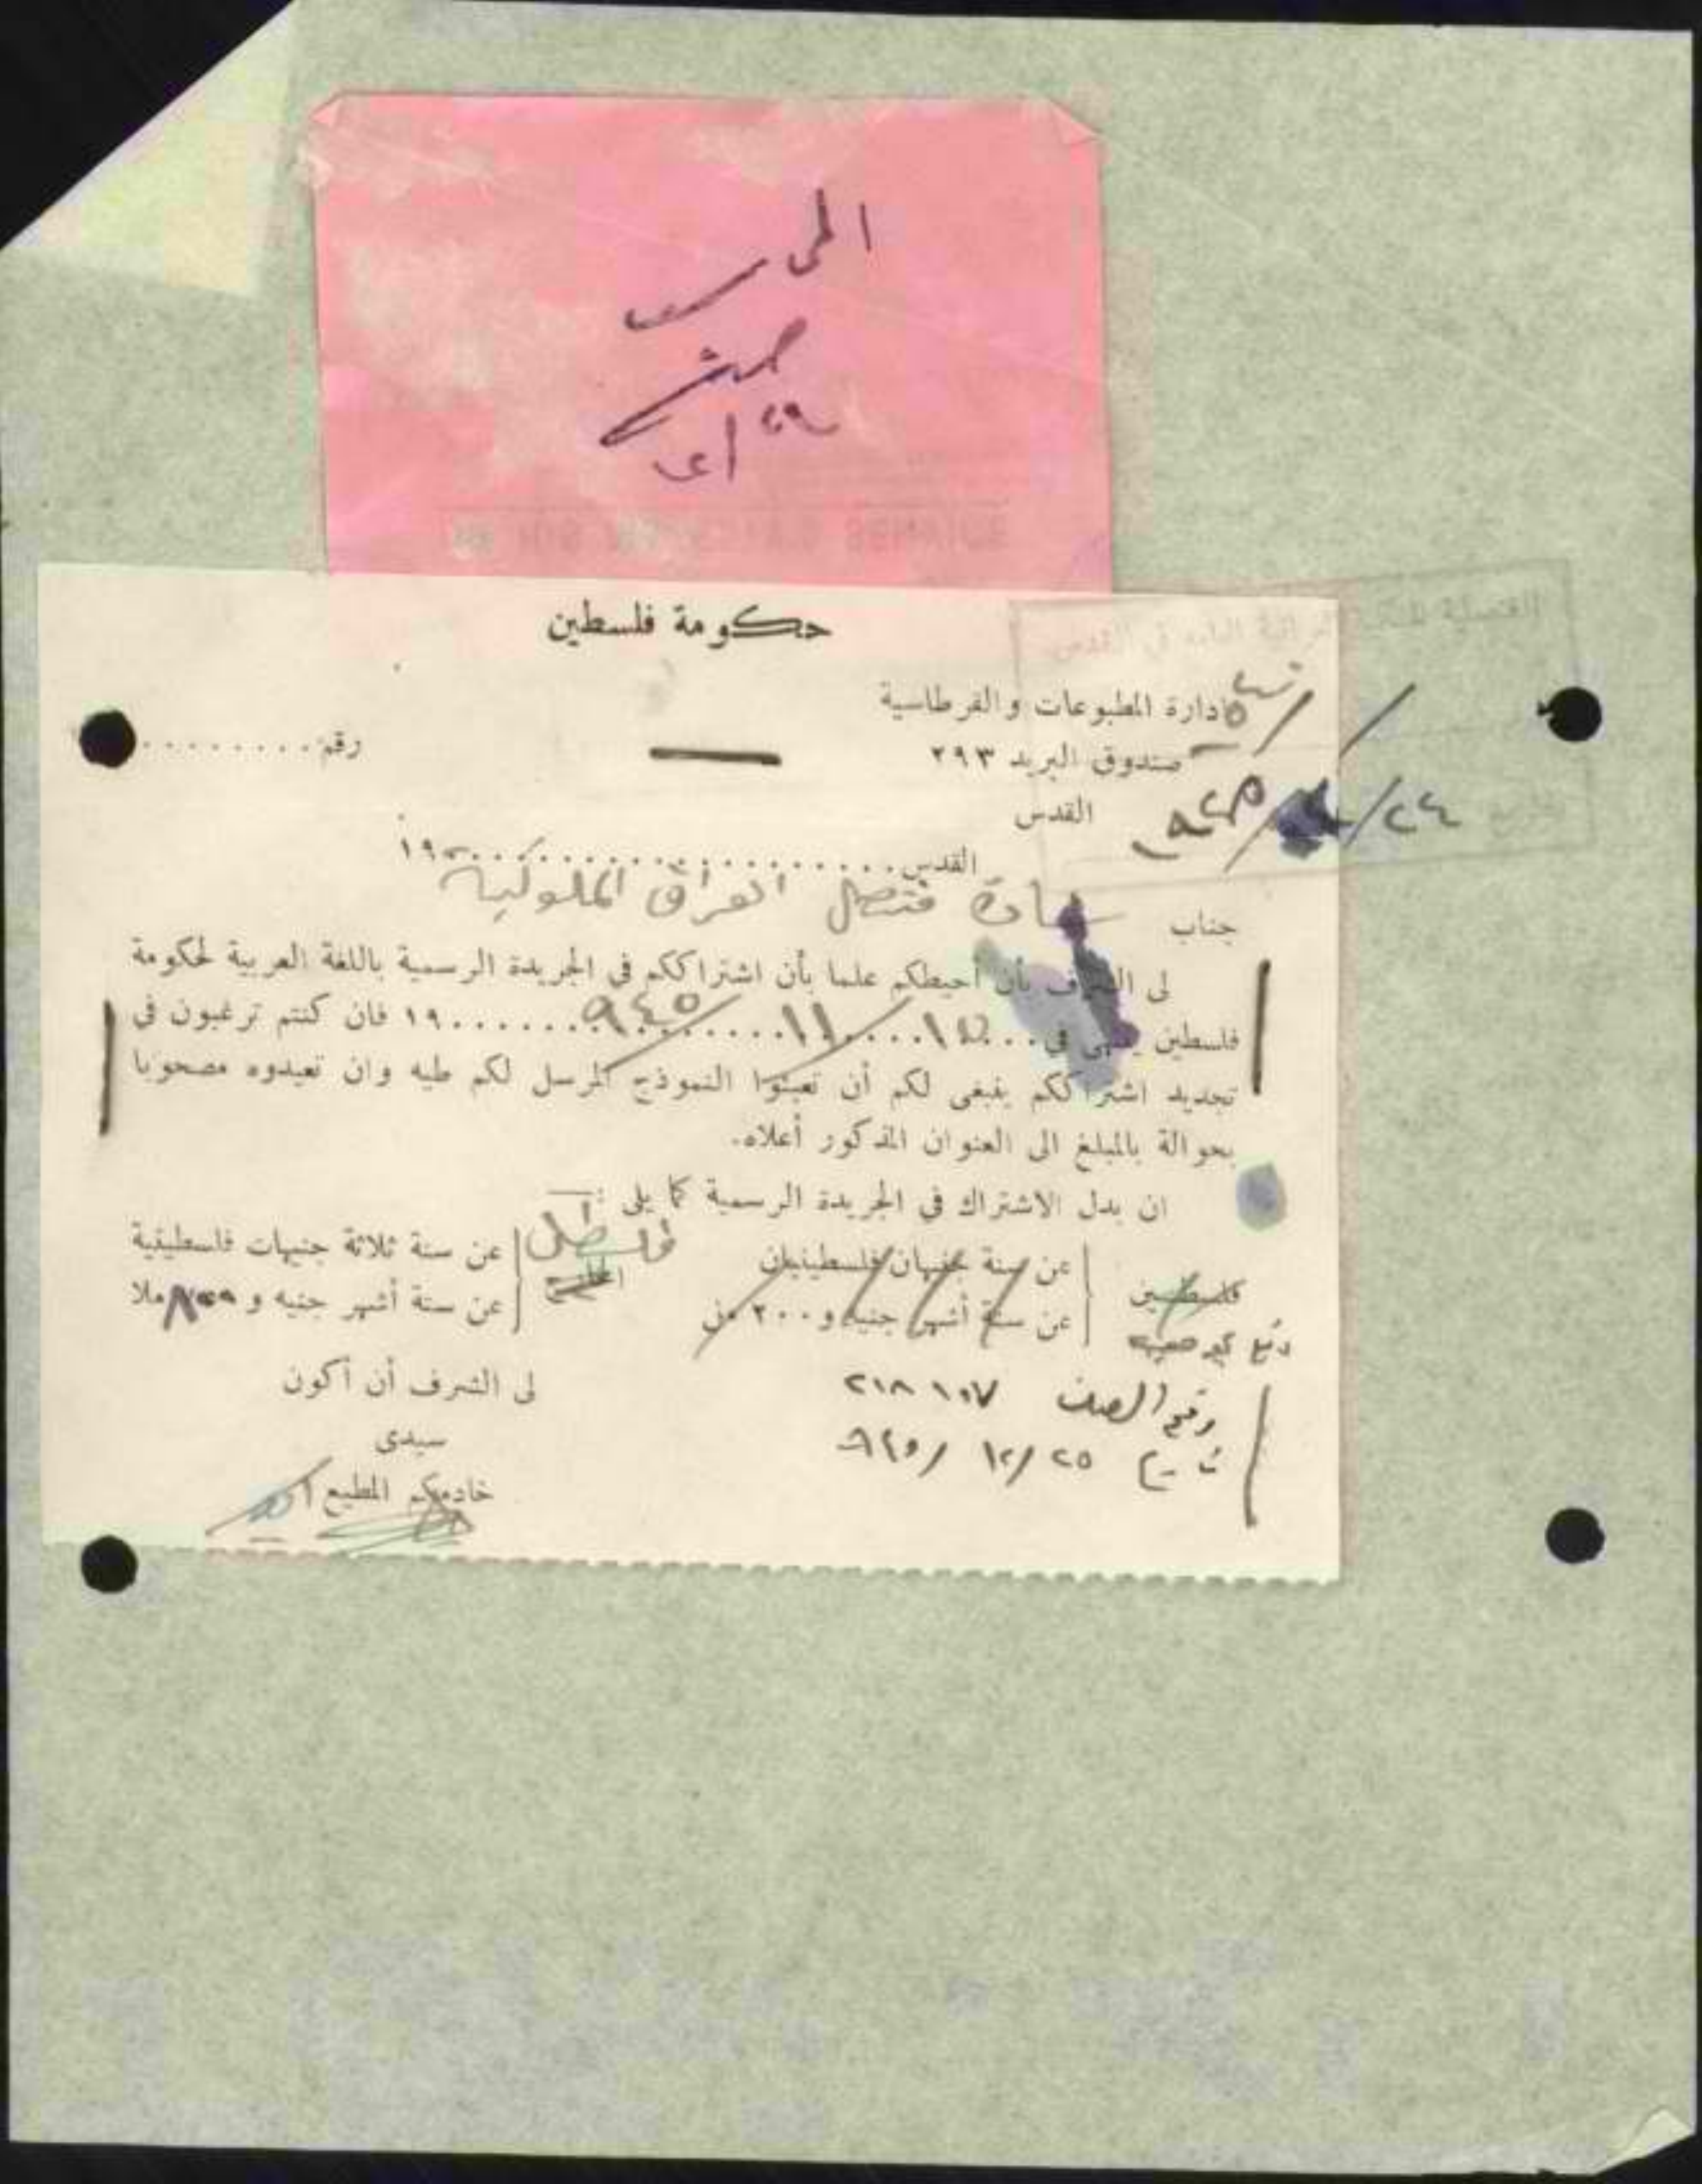 حكومة فلسطين
ادارة المطبوعات والقرطاسية
صندوق البريد ٢٩٣
رقم
القدس
القدس ١٩
جناب سعادة قنصل العراق الملوكية
لى الشرف بأن أحيطكم علما بأن اشتراككم في الجريدة الرسمية باللغة العربية لحكومة
فلسطين ينتهى في ١٥/١١/٩٤٥ ١٩ فان كنتم ترغبون في
تجديد اشتراككم ينبغى لكم أن تعبئوا النموذج المرسل لكم طيه وان تعيدوه مصحوبا
بحوالة بالمبلغ الى العنوان المذكور أعلاه.
ان بدل الاشتراك في الجريدة الرسمية كما يلى :
فلسطين
عن سنة جنيهان فلسطينيان
عن ستة أشهر جنيه و ٢٠٠ مل
الخارج
عن سنة ثلاثة جنيهات فلسطينية
عن ستة أشهر جنيه و ملا
رقم الصك ٢١٨١٠٧
تاريخ ٢٥/١٢/٩٤٥
لى الشرف أن أكون
سيدى
خادمكم المطيع